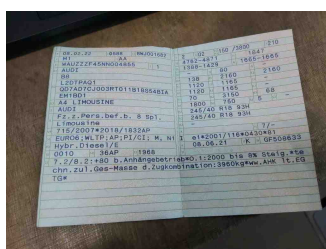 08.06.22 0588 BWJ001502
M1 AA
WAUZZZF45NN004855
AUDI
B8
L2DTPAQ1
EM1BD1
A4 LIMOUSINE
Fz.z.Pers.bef.b. 8 Spl.
Limousine
715/2007*2018/1832AP
EURO6;WLTP;AP;PI/CI; M, N1 I
Hybr.Diesel/E
0010 36AP 1968
7.2/8.2:+80 b.Anhängebetrieb*0.1:2000 bis 8% Steig.*te
chn.zul.Ges-Masse d.Zugkombination:3960kg*Ww.AHK lt.EG
TG*
150 /3800 210
4762-4671 1847
1398-1429 1665-1665
80
138 2160 2160
1120 1165
1120 1165
70 2160
70 3150 68
1800 750 5
245/40 R18 93H
245/40 R18 93H
7/-
e1*2001/116*0430*81
08.06.21 K GF506633